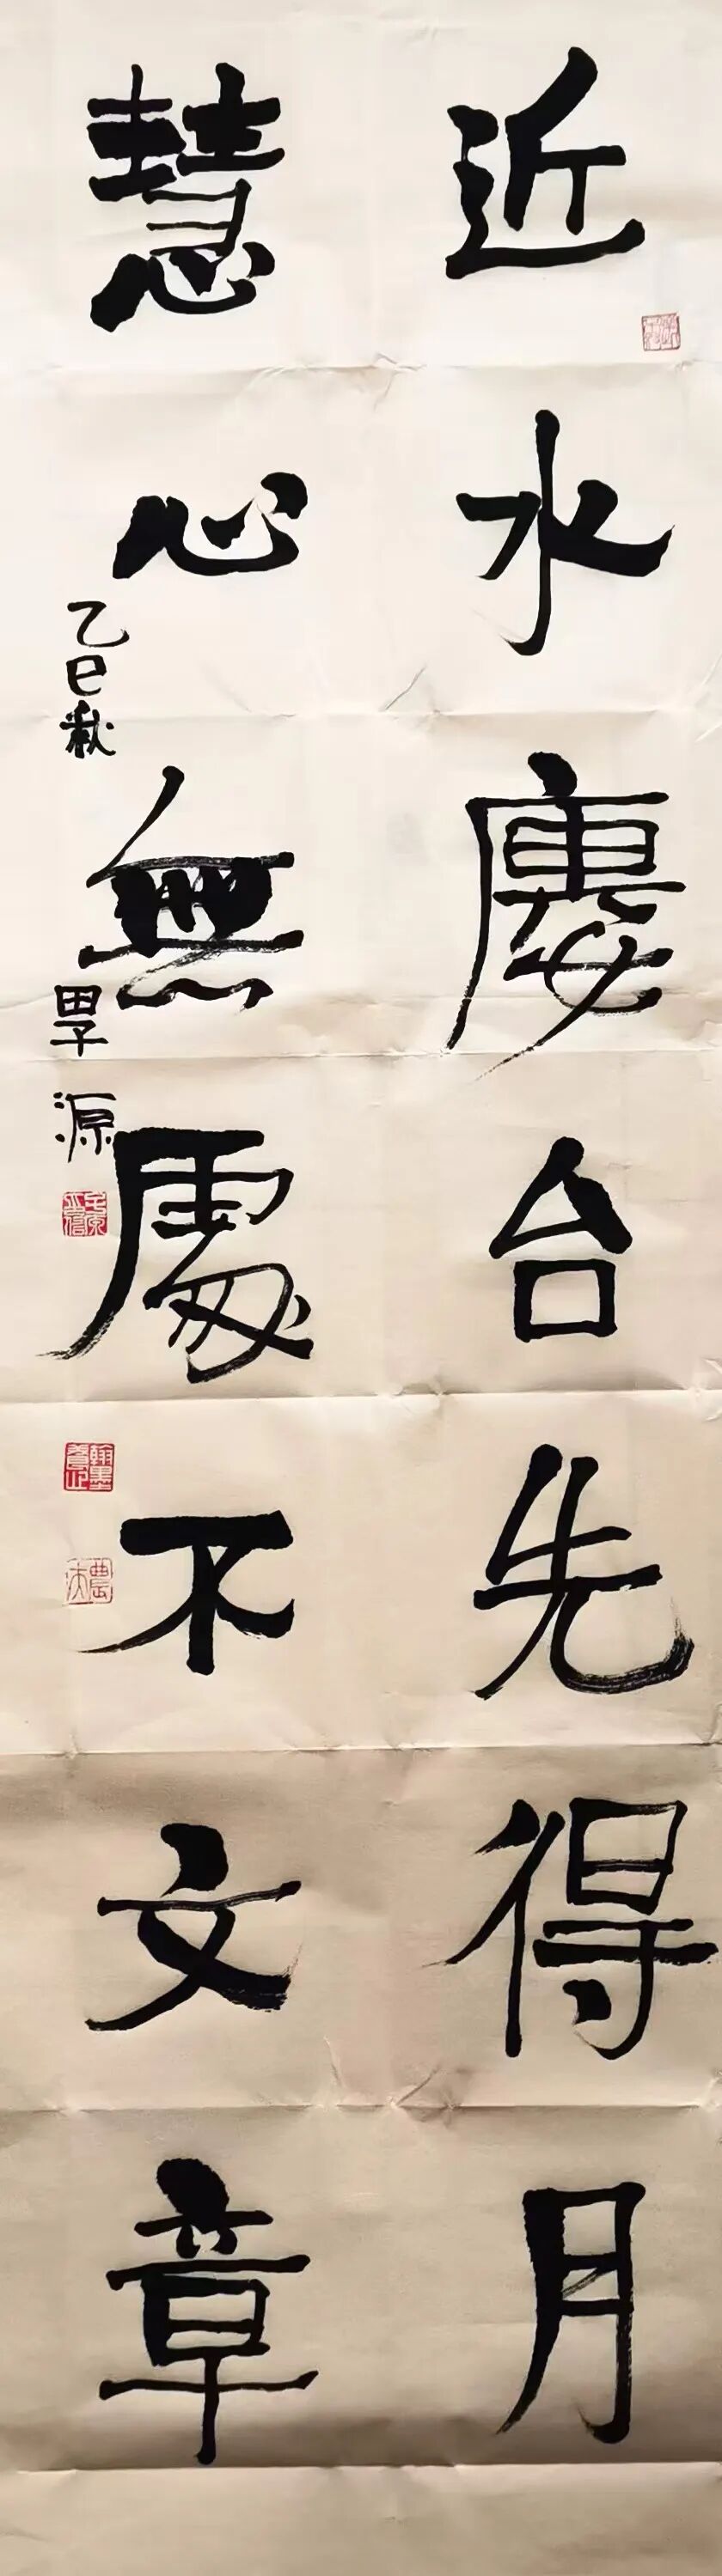 近水廔台先得月
慧心無處不文章
乙巳秋
田子源